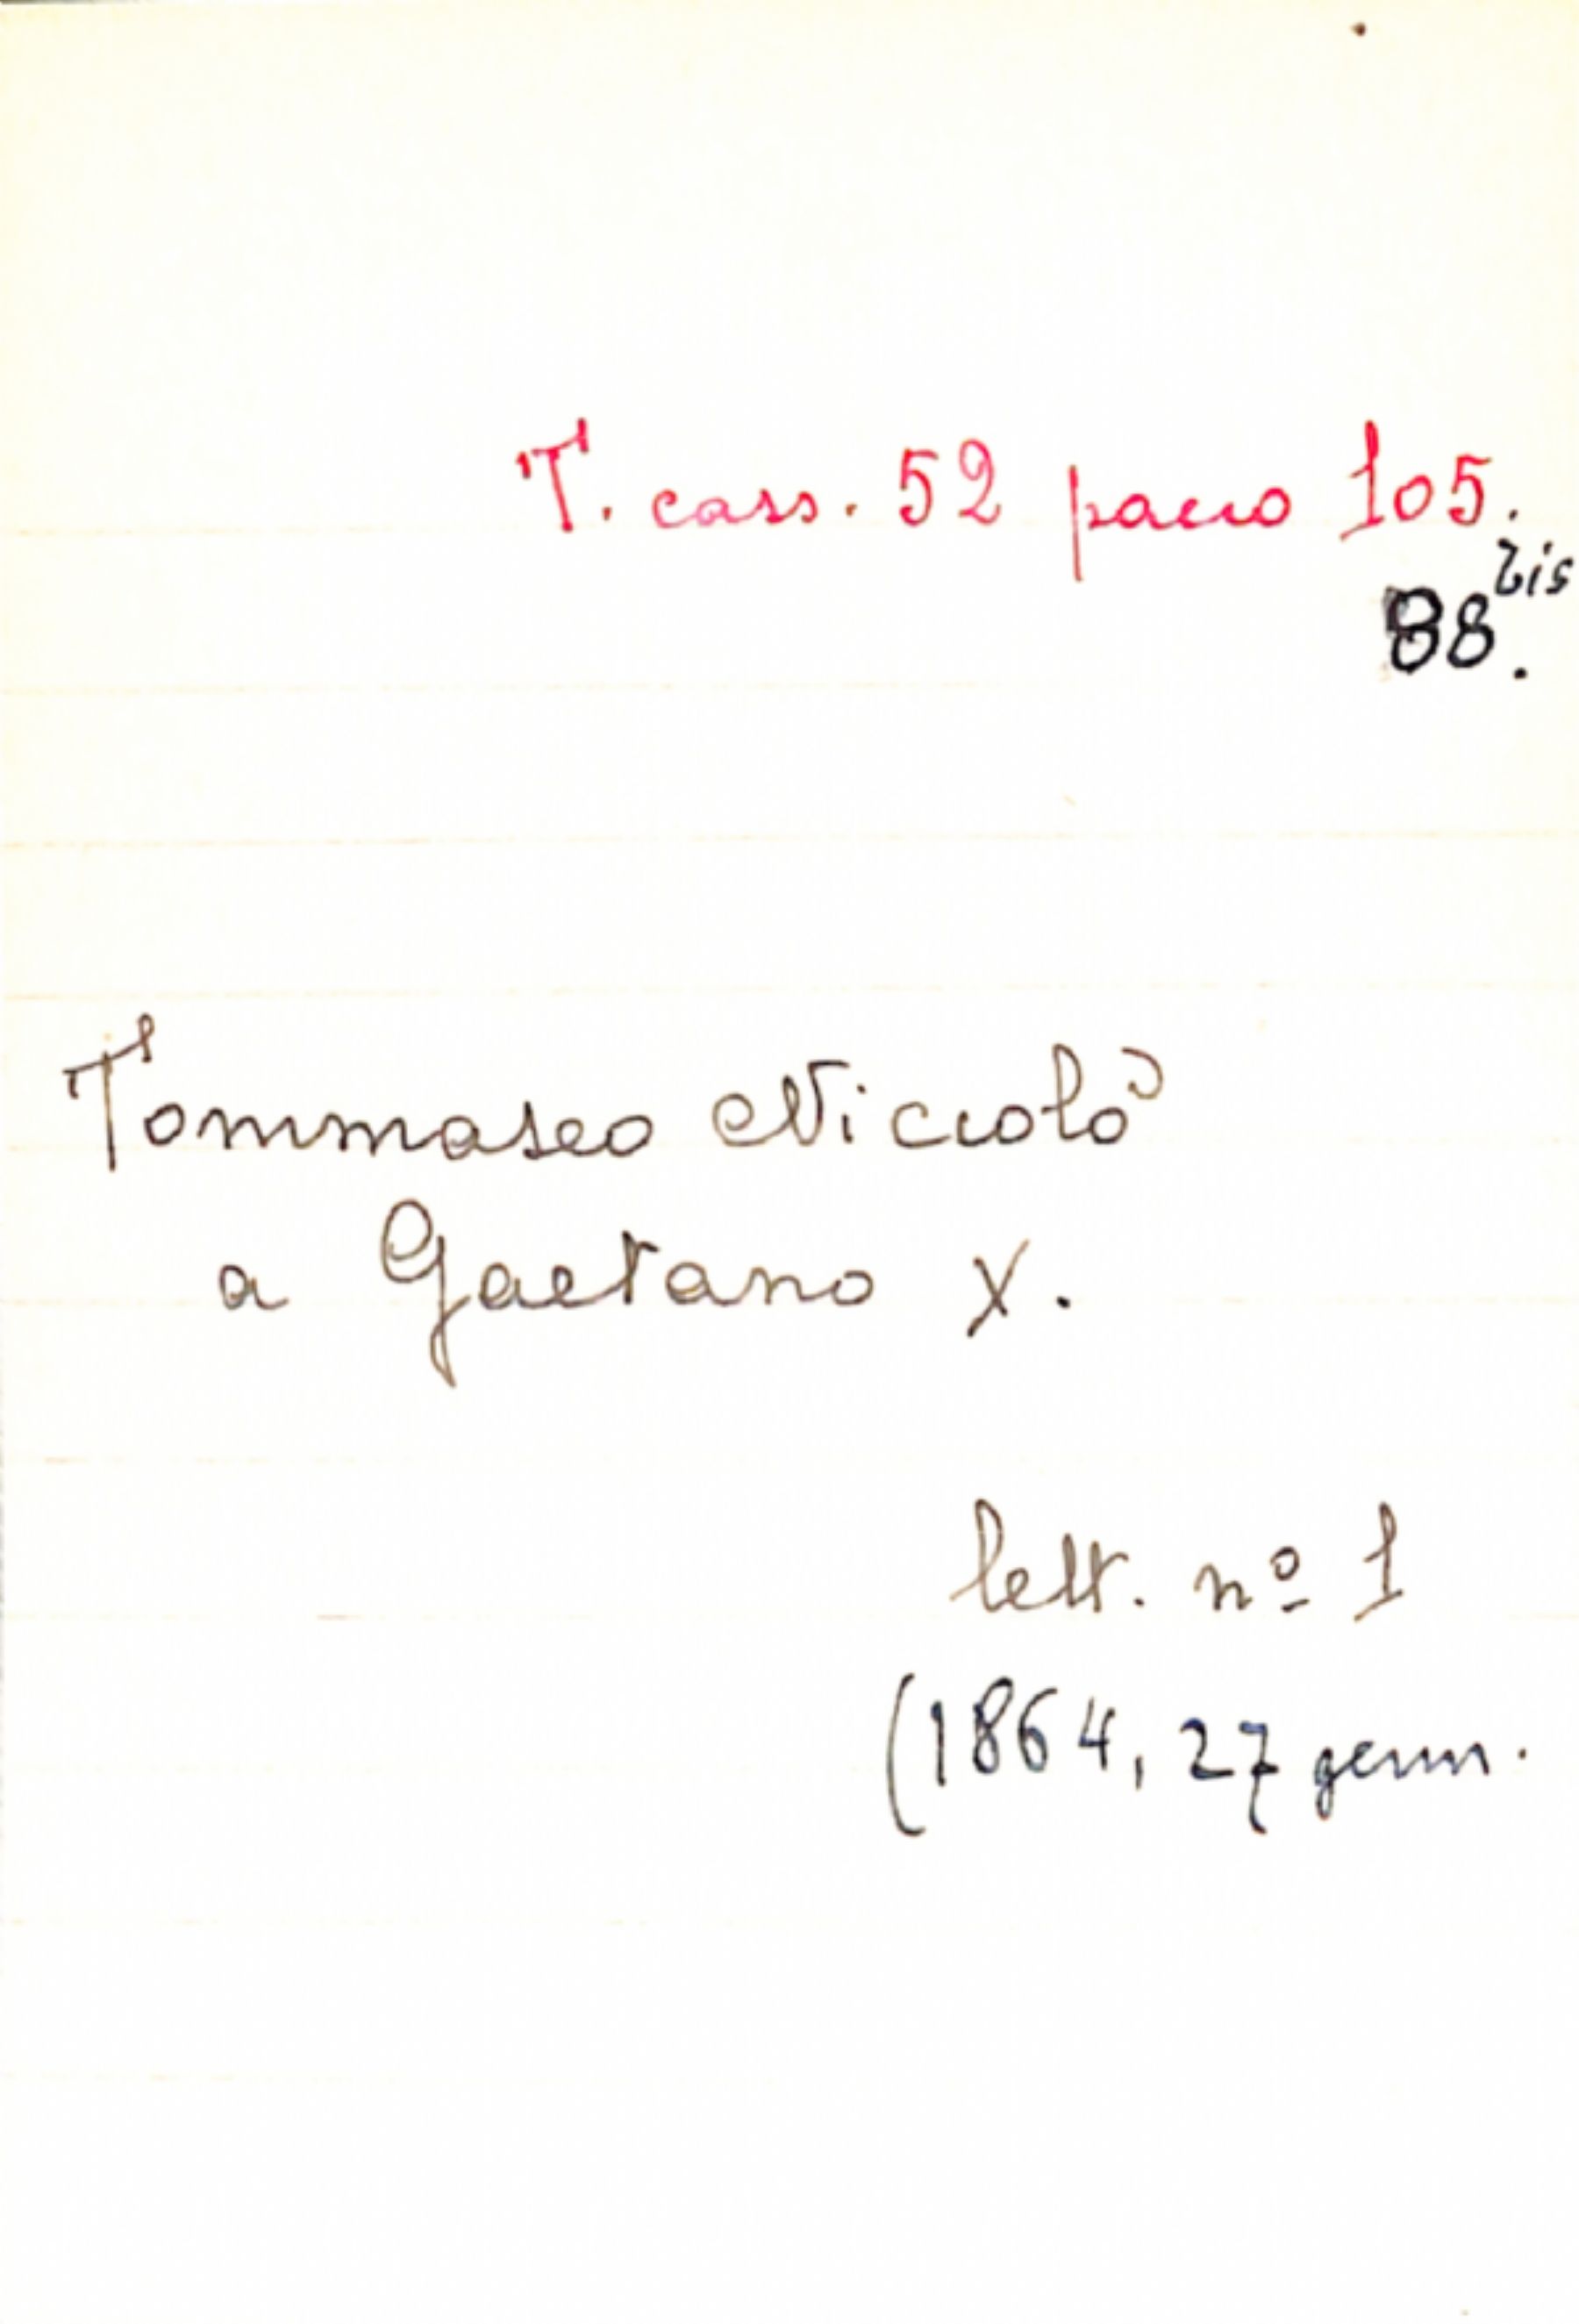 T. cass. 52 pacco 105.
88 bis.
Tommaseo Niccolò
a Gaetano X.
lett. nº 1
(1864, 27 genn.